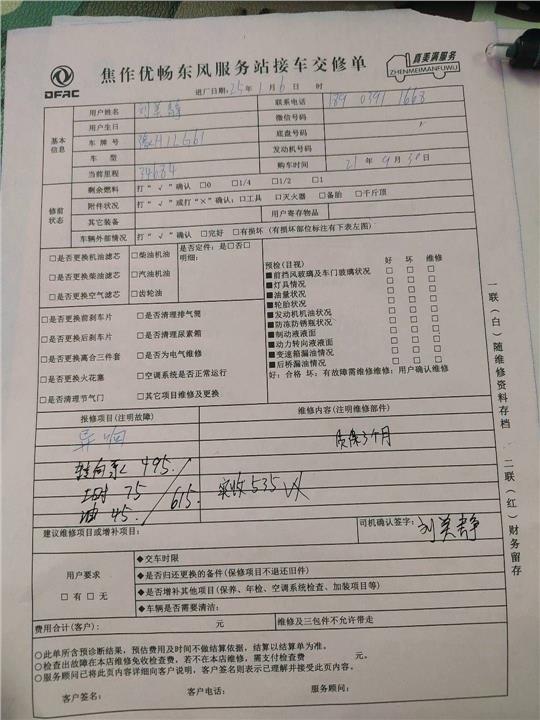 DFAC
焦作优畅东风服务站接车交修单
真美满服务
ZHENMEIMANFUWU
进厂日期: 25年 1月 6日 时
基本信息
用户姓名 刘美静 联系电话 189 0391 1668
用户生日 微信号码
车牌号 底盘号码
车型 发动机号码
当前里程 34684 购车时间 21年 9月 30日
修前状态
剩余燃料 打“√”确认 □0 □1/4 □1/2 □1
附件状况 打“√”或打“×”确认: □工具 □灭火器 □备胎 □千斤顶
其它装备 用户寄存物品
车辆外部情况 打“√”确认 □完好 □有损坏 (有损坏部位标注有下表左图)
□是否更换机油滤芯 □柴油机油 是否定件: 是□否□
明细:
□是否更换柴油滤芯 □汽机油
□是否更换空气滤芯 □齿轮油
□是否更换前刹车片 □是否清理排气筒
□是否更换后刹车片 □是否清理尿素箱
□是否更换离合三件套 □是否为电气维修
□是否更换火花塞 □空调系统是否正常运行
□是否清理节气门 □其它项目维修及更换
预检(目视) 好 坏 维修
■前挡风玻璃及车门玻璃状况 □ □ □
■灯具情况 □ □ □
■油量状况 □ □ □
■轮胎状况 □ □ □
■发动机机油状况 □ □ □
■防冻防锈瓶状况 □ □ □
■制动液液面 □ □ □
■动力转向液液面 □ □ □
■变速箱漏油情况 □ □ □
■后桥漏油情况 □ □ □
好: 合格 坏: 有故障需维修维修: 用户确认维修
报修项目(注明故障) 维修内容(注明维修部件)
异响 质保3个月
转向系 495.
工时 75 615. 实收535
油 45.
建议维修项目或增补项目: 司机确认签字: 刘美静
用户要求
□有 □无
◆交车时限
◆是否归还更换的备件(保修项目不退还旧件)
◆是否增补其他项目(保养、年检、空调系统检查、加装项目等)
◆车辆是否需要清洁:
费用合计(客户): 元 维修及三包件不允许带走
○此单所含预诊断结果, 预估费用及时间不做结算依据, 结算以结算单为准。
○检查出故障在本店维修免收检查费, 若不在本店维修, 需支付检查费 元。
○服务顾问已将此页内容详细向客户说明, 客户签名则表示已理解并接受此页内容。
客户签名: 客户电话: 服务顾问:
一联(白)随维修资料存档
二联(红)财务留存